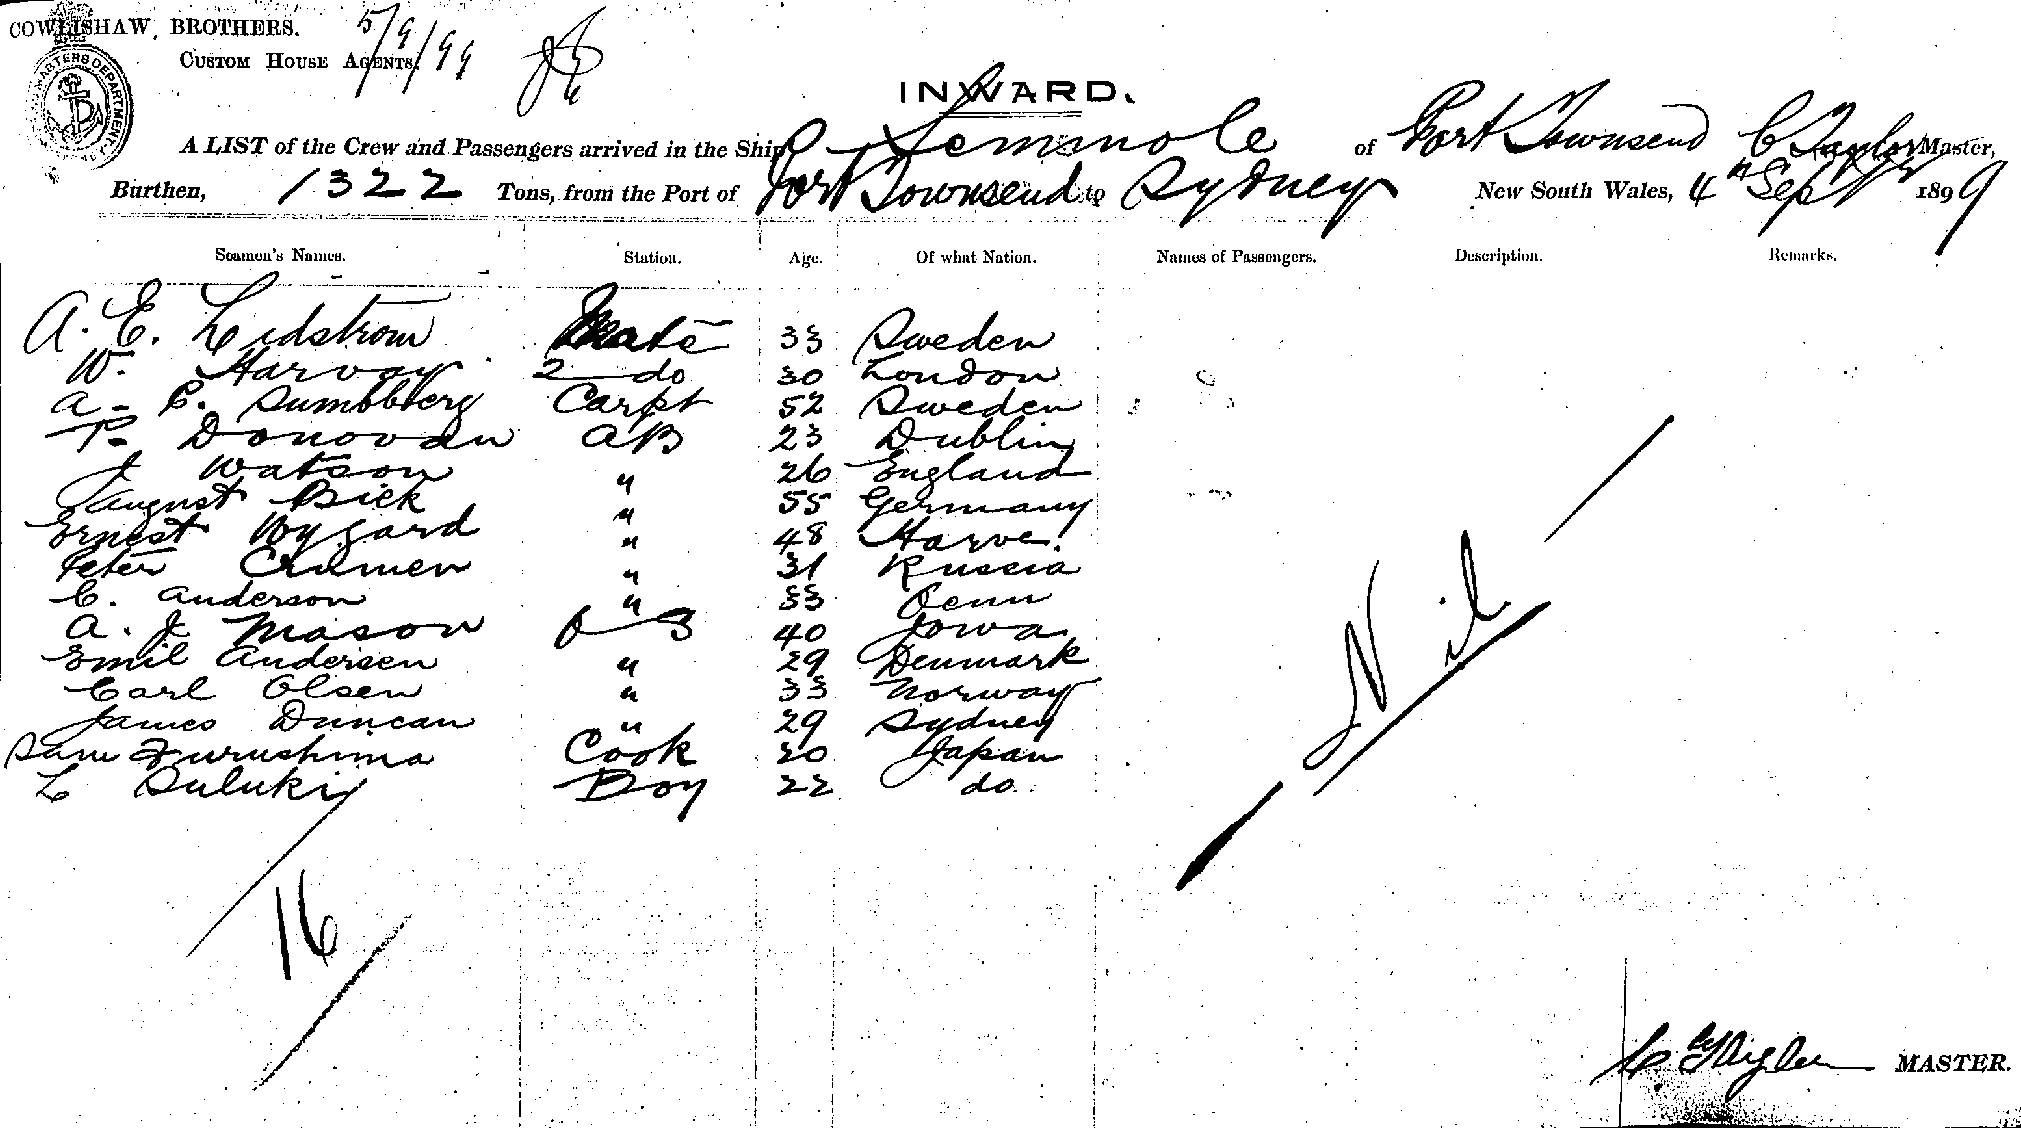 COWLISHAW, BROTHERS. 5/9/99
CUSTOM HOUSE AGENTS.
MASTERS DEPARTMENT
INWARD.
A LIST of the Crew and Passengers arrived in the Ship Seminole of Port Townsend C Taylor Master,
Burthen, 1322 Tons, from the Port of Port Townsend to Sydney New South Wales, 4th Sept 1899
Seamen's Names. Station. Age. Of what Nation. Names of Passengers. Description. Remarks.
A. E. Lidstrom Mate 33 Sweden
W. Harvay 2 do 30 London
A. C. Carpt 52 Sweden
P. Donovan AB 23 Dublin
J Watson " 26 England
August Bick " 55 Germany
Ernest Nygard " 48 Harve.
Peter " 31 Russia
C. Anderson " 33
A. J Mason 40 Iowa
Emil Andersen " 29 Denmark
Carl Olsen " 33 Norway
James Duncan " 29 Sydney
Sam Furushima Cook 20 Japan
L Suluki Boy 22 do
Nil
16
MASTER.